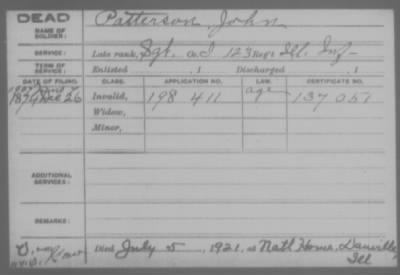 DEAD
NAME OF SOLDIER: Patterson, John
SERVICE: Late rank, Sgt. Co. I 123 Reg't Ill. Inf-
TERM OF SERVICE: Enlisted , 1 Discharged , 1
DATE OF FILING. CLASS. APPLICATION NO. LAW. CERTIFICATE NO.
1907
1874 Dec 26 Invalid, 198 411 age 137 051
Widow,
Minor,
ADDITIONAL SERVICES:
REMARKS:
Died July 5, 1921, at Nat'l Home, Danville
Ill